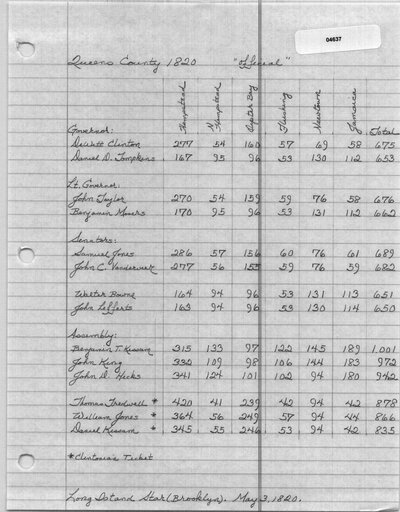 04637
Queens County 1820 "Official"
Hempstead N Hempstead Oyster Bay Flushing Newtown Jamaica Total
Governor:
DeWitt Clinton 277 54 160 57 69 58 675
Daniel D. Tompkins 167 95 96 53 130 112 653
Lt. Governor:
John Taylor 270 54 159 59 76 58 676
Benjamin Moers 170 95 96 53 131 112 662
Senators:
Samuel Jones 286 57 156 60 76 61 689
John C. Vanderveer 277 56 155 59 76 59 682
Walter Bowne 164 94 96 53 131 113 651
John Lefferts 163 94 96 53 130 114 650
Assembly:
Benjamin T. Kissam 315 133 97 122 145 189 1.001
John King 332 109 98 106 144 183 972
John D. Hicks 341 124 101 102 94 180 942
Thomas Tredwell * 420 41 239 42 94 42 878
William Jones * 364 56 249 57 94 44 866
Daniel Kissam * 345 55 246 53 94 42 835
*Clintonia's Ticket
Long Island Star (Brooklyn). May 3, 1820.